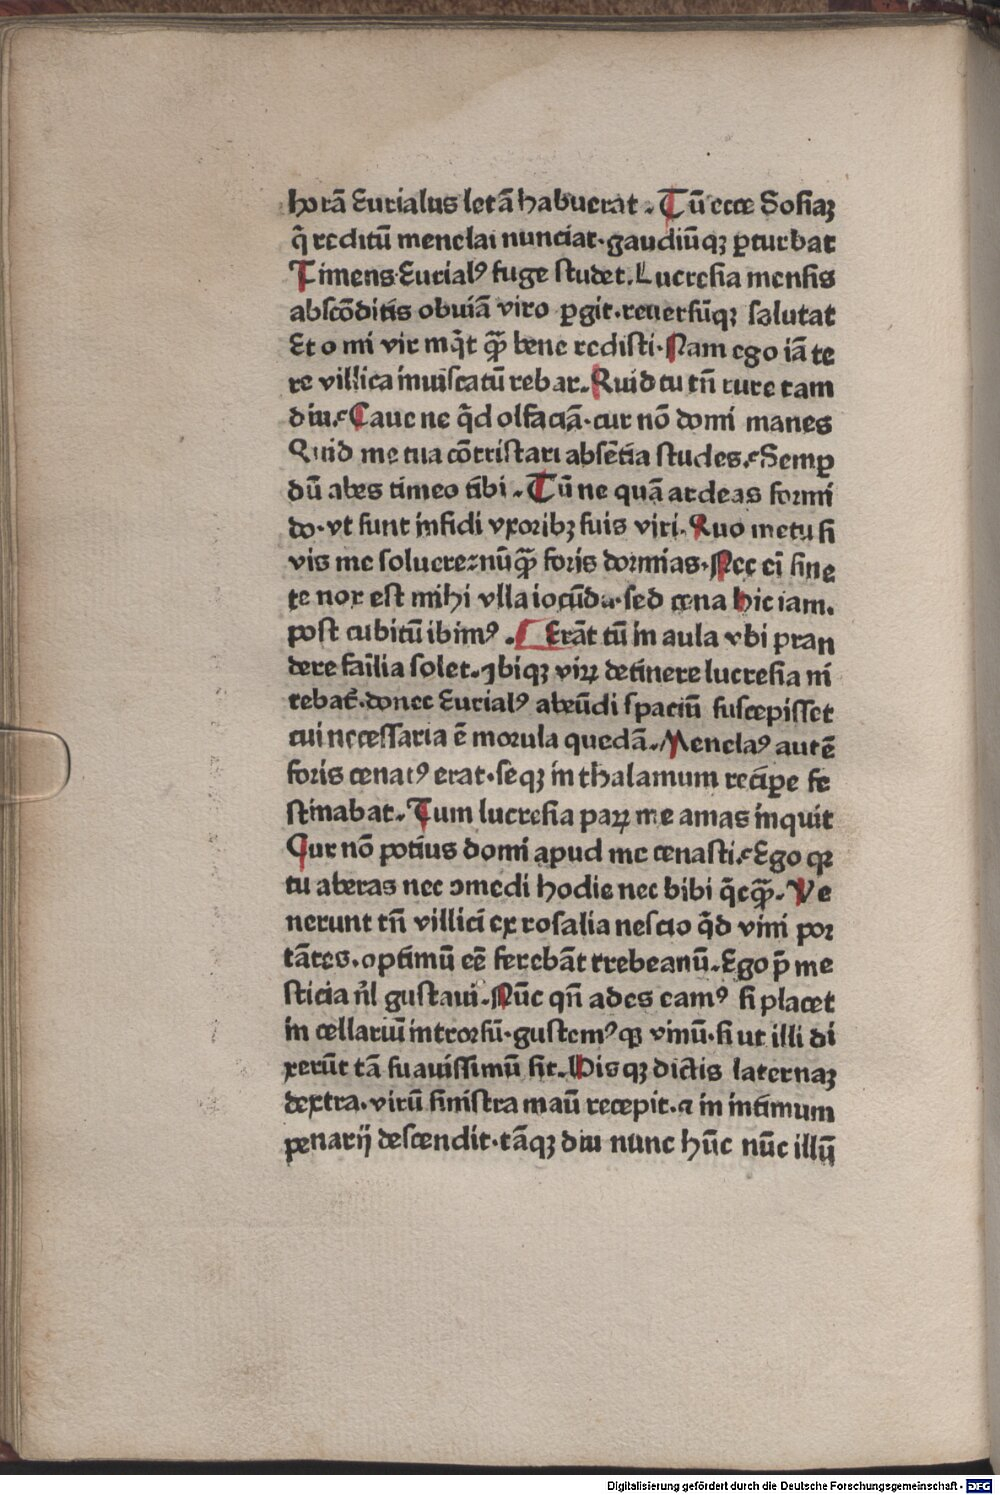 horā Eurialus letā habuerat. Tū ecce Sosiaꝫ
q̄ reditū menelai nunciat·gaudiūqꝫ ꝑturbat
Timens Eurialꝰ fuge studet. Lucresia mensis
abscōditis obuiā viro ꝑgit·reuersūqꝫ salutat
Et o mi vir mq̄t qꝫ̄ bene redisti·Nam ego iā te
re villica inuiscatū rebar. Quid tu tn̄ rure tam
diu. Caue ne q̄d olfaciā·cur nō domi manes
Quid me tua cōtristari absētia studes. Semꝑ
dū abes timeo tibi. Tū ne quā ardeas formi
do·vt sunt infidi vxoribꝫ suis viri. Quo metu si
vis me soluere:nūqꝫ̄ foris dormias·Nec ei̅ sine
te nox est mihi vlla iocūda·sed cena hic iam.
post cubitū ibimꝰ. Erāt tū in aula vbi pran
dere fai̅lia solet. Ibiqꝫ viꝝ detinere lucresia ni
tebat᷑·donec Eurialꝰ abeūdi spaciū suscepisset
cui necessaria ē morula quedā. Menelaꝰ autē
foris cenatꝰ erat·seqꝫ in thalamum reciꝑe fe
stinabat. Tum lucresia paꝝ me amas inquit
Cur nō potius domi apud me cenasti. Ego qꝛ
tu aberas nec ↄmedi hodie nec bibi q̄cqꝫ̄. Ve
nerunt tn̄ villici ex rosalia nescio q̄d vini por
tātes·optimū eē ferebāt trebeanū. Ego p̄ me
sticia n̄l gustaui. Nūc qn̄ ades eamꝰ si placet
in cellariū introrsū·gustemꝰqꝫ vinū·si ut illi di
xerūt tā suauissimū sit. Hisqꝫ dictis laternaꝫ
dextra·virū sinistra manū recepit·⁊ in intimum
penarij descendit·tāqꝫ diu nunc hūc nūc illū
Digitalisierung gefördert durch die Deutsche Forschungsgemeinschaft - DFG